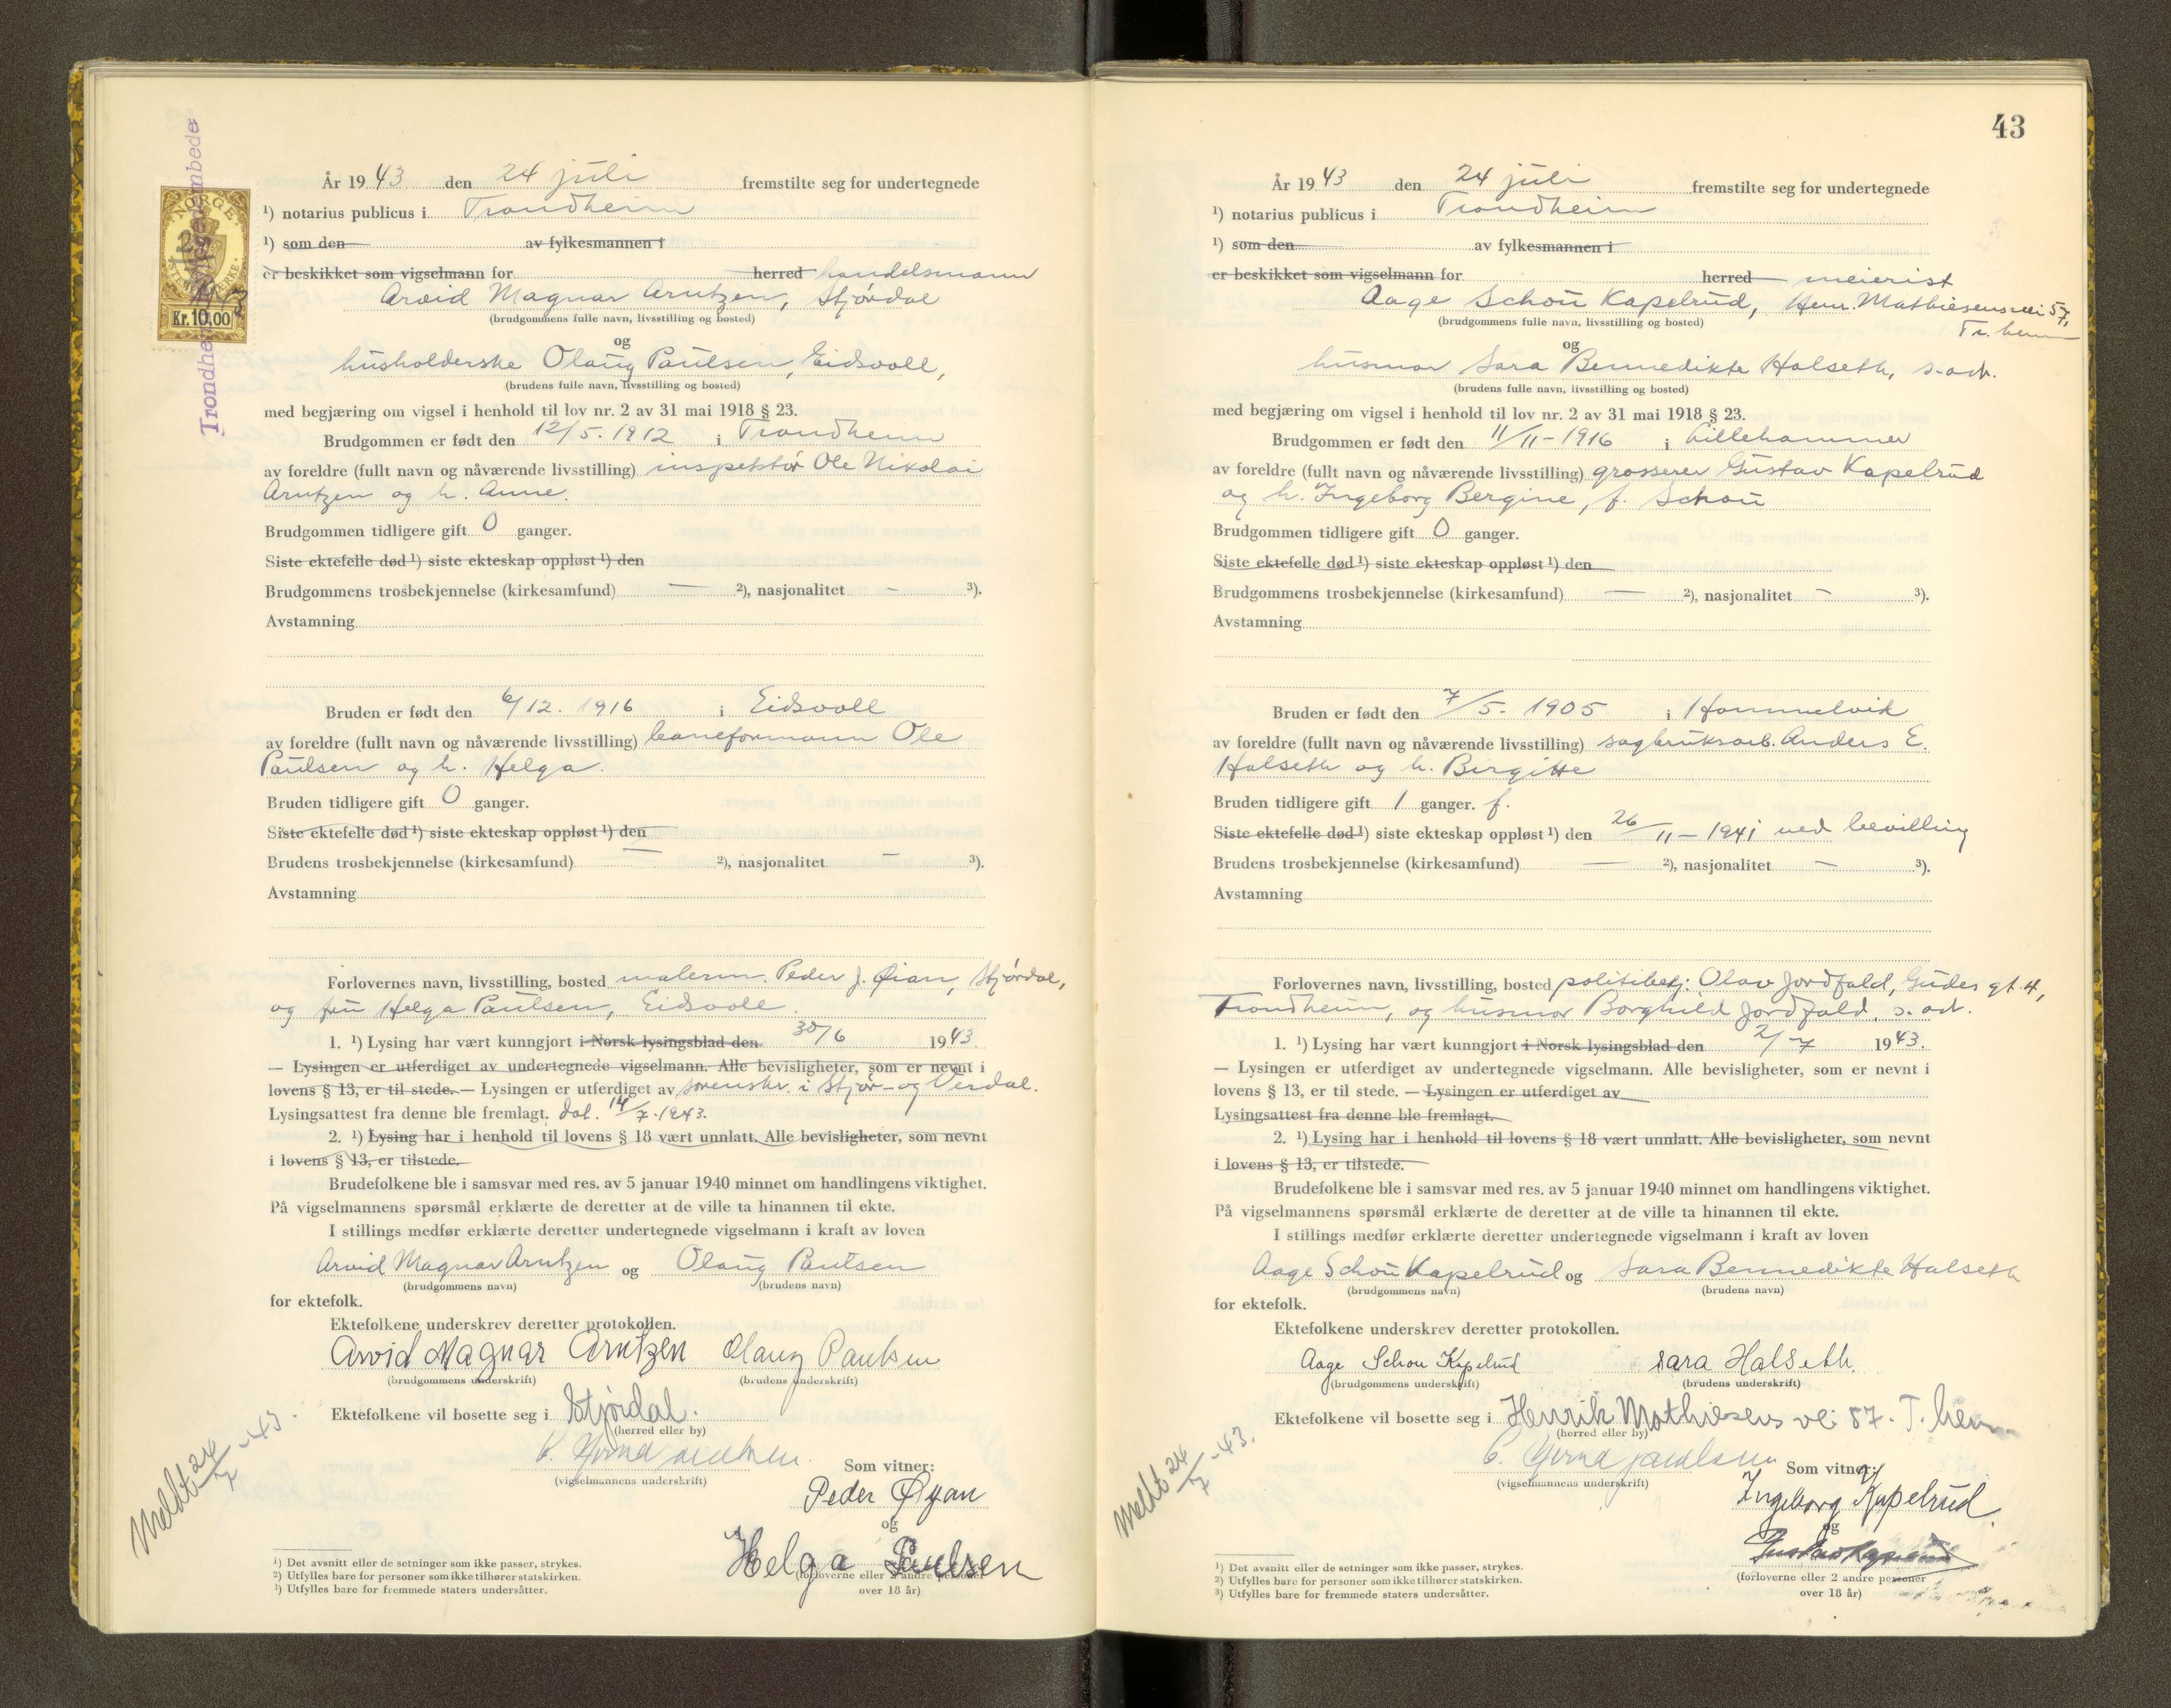 År 1943 den 24 juli fremstilte seg for undertegnede
¹) notarius publicus i Trondheim
¹) som den av fylkesmannen i
er beskikket som vigselmann for herred handelsmann
Arvid Magnar Arntzen, Stjørdal
(brudgommens fulle navn, livsstilling og bosted)
og
husholderske Olaug Paulsen, Eidsvoll,
(brudens fulle navn, livsstilling og bosted)
med begjæring om vigsel i henhold til lov nr. 2 av 31 mai 1918 § 23.
Brudgommen er født den 12/5. 1912 i Trondheim
av foreldre (fullt navn og nåværende livsstilling) inspektør Ole Nikolai
Arntzen og h. Anne.
Brudgommen tidligere gift 0 ganger.
Siste ektefelle død ¹) siste ekteskap oppløst ¹) den
Brudgommens trosbekjennelse (kirkesamfund) — ²), nasjonalitet – ³).
Avstamning
Bruden er født den 6/12. 1916 i Eidsvoll
av foreldre (fullt navn og nåværende livsstilling) baneformann Ole
Paulsen og h. Helga.
Bruden tidligere gift 0 ganger.
Siste ektefelle død ¹) siste ekteskap oppløst ¹) den
Brudens trosbekjennelse (kirkesamfund) — ²), nasjonalitet — ³).
Avstamning
Forlovernes navn, livsstilling, bosted malerm. Peder J. Øian, Stjørdal,
og fru Helga Paulsen, Eidsvoll.
1. ¹) Lysing har vært kunngjort i Norsk lysingsblad den 30/6 1943.
— Lysingen er utferdiget av undertegnede vigselmann. Alle bevisligheter, som er nevnt i
lovens § 13, er til stede. — Lysingen er utferdiget av sorenskr. i Stjør- og Verdal.
Lysingsattest fra denne ble fremlagt. dat. 14/7. 1943.
2. ¹) Lysing har i henhold til lovens § 18 vært unnlatt. Alle bevisligheter, som nevnt
i lovens § 13, er tilstede.
Brudefolkene ble i samsvar med res. av 5 januar 1940 minnet om handlingens viktighet.
På vigselmannens spørsmål erklærte de deretter at de ville ta hinannen til ekte.
I stillings medfør erklærte deretter undertegnede vigselmann i kraft av loven
Arvid Magnar Arntzen og Olaug Paulsen
(brudgommens navn) (brudens navn)
for ektefolk.
Ektefolkene underskrev deretter protokollen.
Arvid Magnar Arntzen Olaug Paulsen
(brudgommens underskrift) (brudens underskrift)
Ektefolkene vil bosette seg i Stjørdal.
(herred eller by)
Som vitner:
(vigselmannens underskrift)
Peder Øyan
og
Helga Paulsen
(forloverne eller 2 andre personer
over 18 år)
Meldt 24/7 -43.
¹) Det avsnitt eller de setninger som ikke passer, strykes.
²) Utfylles bare for personer som ikke tilhører statskirken.
³) Utfylles bare for fremmede staters undersåtter.
NORGE
Kr. 10,00
43
År 1943 den 24 juli fremstilte seg for undertegnede
¹) notarius publicus i Trondheim
¹) som den av fylkesmannen i
er beskikket som vigselmann for herred meierist
Aage Schou Kapelrud, Henr. Mathiesens vei 57,
Tr.heim
(brudgommens fulle navn, livsstilling og bosted)
og
husmor Sara Bennedikte Halseth, s. adr.
(brudens fulle navn, livsstilling og bosted)
med begjæring om vigsel i henhold til lov nr. 2 av 31 mai 1918 § 23.
Brudgommen er født den 11/11 - 1916 i Lillehammer
av foreldre (fullt navn og nåværende livsstilling) grosserer Gustav Kapelrud
og h. Ingeborg Bergine, f. Schou
Brudgommen tidligere gift 0 ganger.
Siste ektefelle død ¹) siste ekteskap oppløst ¹) den
Brudgommens trosbekjennelse (kirkesamfund) — ²), nasjonalitet – ³).
Avstamning
Bruden er født den 7/5. 1905 i Hommelvik
av foreldre (fullt navn og nåværende livsstilling) sagbruksarb. Anders E.
Halseth og h. Birgitte
Bruden tidligere gift 1 ganger. f.
Siste ektefelle død ¹) siste ekteskap oppløst ¹) den 26/11 – 1941 ved bevilling
Brudens trosbekjennelse (kirkesamfund) — ²), nasjonalitet – ³).
Avstamning
Forlovernes navn, livsstilling, bosted politibetj. Olav Jordfald, Gudes gt. 4,
Trondheim, og husmor Borghild Jordfald, s. adr.
1. ¹) Lysing har vært kunngjort i Norsk lysingsblad den 2/7 1943.
— Lysingen er utferdiget av undertegnede vigselmann. Alle bevisligheter, som er nevnt i
lovens § 13, er til stede. — Lysingen er utferdiget av
Lysingsattest fra denne ble fremlagt.
2. ¹) Lysing har i henhold til lovens § 18 vært unnlatt. Alle bevisligheter, som nevnt
i lovens § 13, er tilstede.
Brudefolkene ble i samsvar med res. av 5 januar 1940 minnet om handlingens viktighet.
På vigselmannens spørsmål erklærte de deretter at de ville ta hinannen til ekte.
I stillings medfør erklærte deretter undertegnede vigselmann i kraft av loven
Aage Schou Kapelrud og Sara Bennedikte Halseth
(brudgommens navn) (brudens navn)
for ektefolk.
Ektefolkene underskrev deretter protokollen.
Aage Schou Kapelrud Sara Halseth.
(brudgommens underskrift) (brudens underskrift)
Ektefolkene vil bosette seg i Henrik Mathiesens vei 57. T.heim
(herred eller by)
Som vitner:
(vigselmannens underskrift)
Ingeborg Kapelrud
og
Gustav Kapelrud
(forloverne eller 2 andre personer
over 18 år)
Meldt 24/7 -43.
¹) Det avsnitt eller de setninger som ikke passer, strykes.
²) Utfylles bare for personer som ikke tilhører statskirken.
³) Utfylles bare for fremmede staters undersåtter.